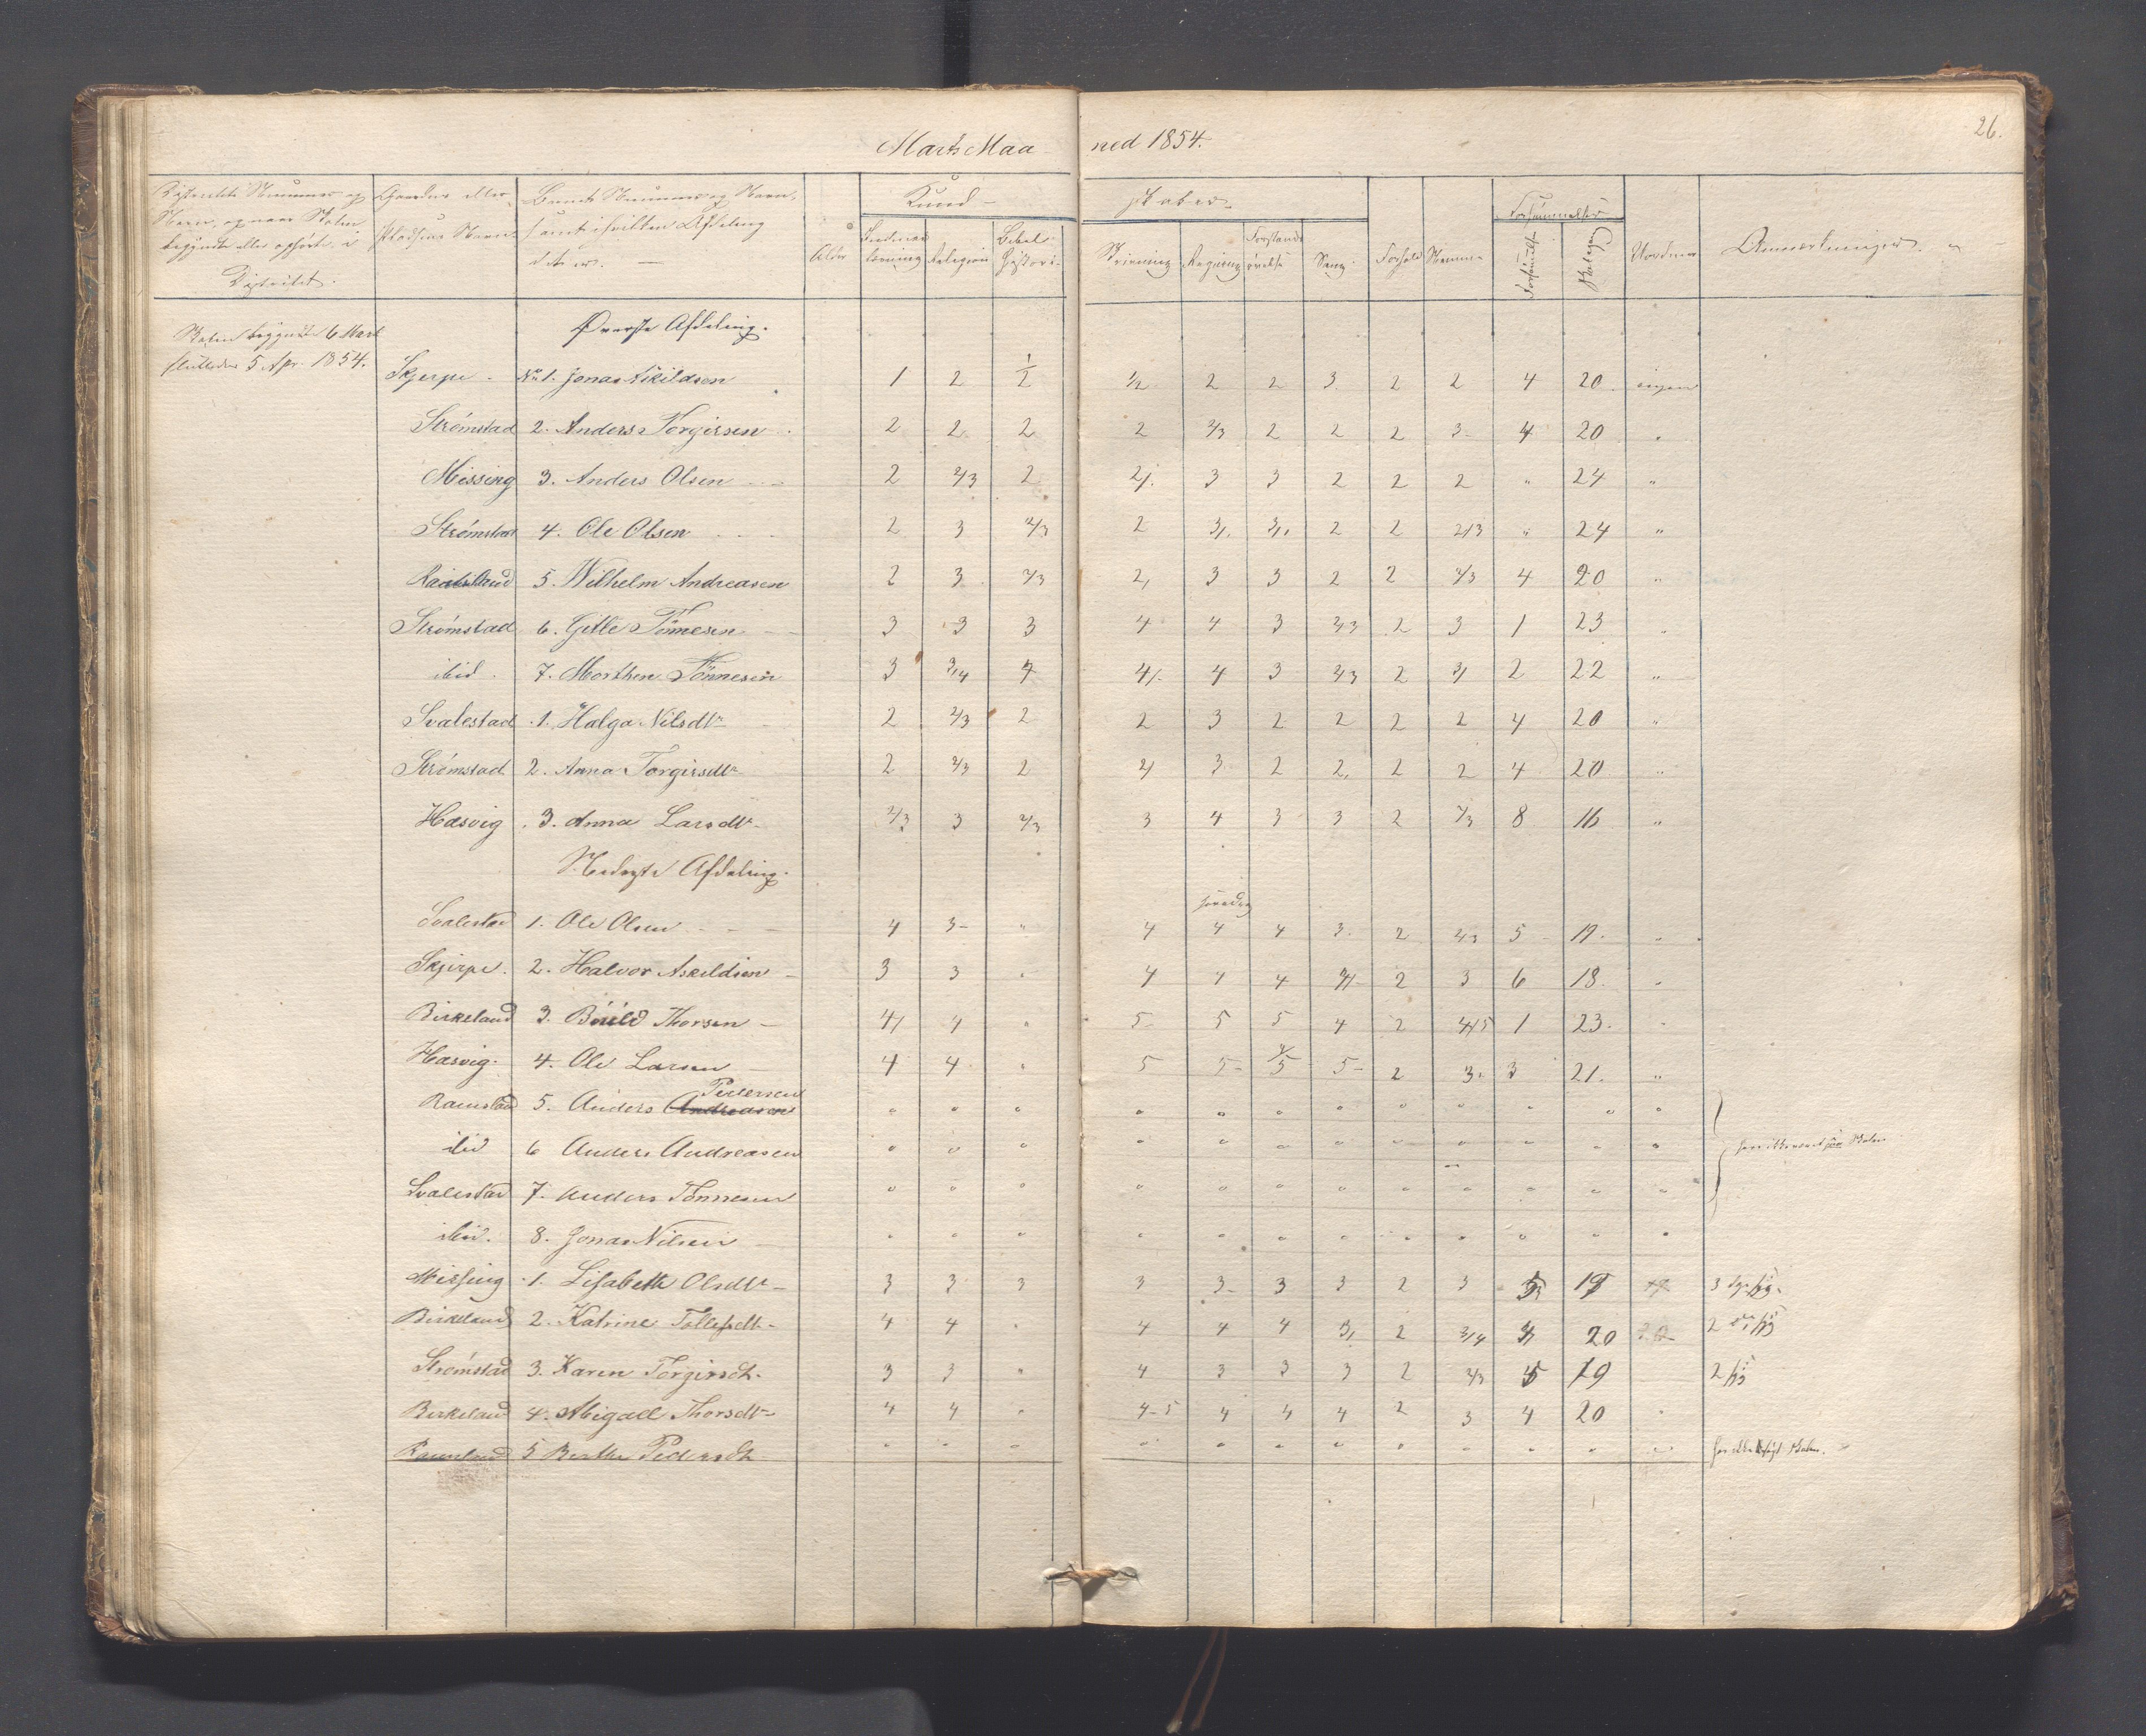 26.
Marts Maa ned 1854.
Districtets Nummer og Navn, og naar Skolen begyndte eller ophørte i Districtet.
Gaardens eller Pladsens Navn
Barnets Nummer og Navn, samt i hvilken Afdeling det er.
Alder
Kund- skaber.
Religion Bibel Historie
Skrivning Regning Forstands øvelse Sang Forhold Nemme
Forsømmelser
Uorden Anmærkninger.
Skolen begyndte 6 Marts
sluttedes 5 Apr. 1854.
Øverste Afdeling.
Skjerpe - No 1. Jonas Askildsen 1 2 1/2 1/2 2 2 3. 2 2 4 20 ingen
Strømstad 2. Anders Torgirsen 2 2 2 2 2/3 2 2 2 3 4 20 "
Missing 3. Anders Olsen 2 2/3 2 2/. 3 3 2 2 2 " 24 "
Strømstad 4. Ole Olsen 2 3 2/3 2 3/. 3/. 2 2 2/3 " 24 "
5. Wilhelm Andreasen 2 3 2/3 2, 3 3 2 2 2/3 4 20 "
Strømstad 6. Gitle Tönnesen 3 3 3 4 4 3 2/3 2 3 1 23 "
ibid. 7. Morthen Tönnesen 3 3/4 4 4/- 4 3 2/3 2 3/ 2 22 "
Svalestad 1. Halga Nilsdtr 2 2/3 2 2 3 2 2 2 2 4 20 "
Strømstad 2. Anna Torgirsdtr 2 2/3 2 2/ 3 2 2, 2 2 4 20 "
Hæsvig 3. Anna Larsdtr 2/3 3 2/3 3 4 3 3 2 2/3 8 16 "
Nederste Afdeling.
Svalestad 1. Ole Olsen 4 3 " 4 4 4 3. 2 2/3 5 19. "
Skjerpe. 2. Halvor Askildsen 3 3 " 4 4 4 3/ 2 3 6 18. "
Birkeland 3. Thorsen 4/ 4 " 5 5 5 4 2 4/5 1 23. "
Hæsvig. 4. Ole Larsen 4 4 " 5 5 4/5 5 2 3. 3 21. "
Ramslad 5. Anders Andreasen Pedersen " " " " " " " " " " " "
ibid 6 Anders Andreasen " " " " " " " " " " " " har ikke været paa Skolen
Svalestad 7. Anders Tönnesen " " " " " " " " " " " "
ibid. 8. Jonas Nilsen " " " " " " " " " " " "
Missing 1. Lisabeth Olsdtr 3 3 3 3 3 3 3 2 3 5 19
Birkeland 2. Katrine Tollefsdtr 4 4 " 4 4 4 3/ 2 3/4 4 20
Strømstad 3. Karen Torgirsdt. 3 3 " 4 3 3 3 2 2/3 5 19
Birkeland 4. Abigael Thorsdtr 4 4 " 4-5 4 4 4 2 3 4 20 "
5 Berthe Pedersdt. " " " " " " " " " " " " har ikke søgt Skolen.